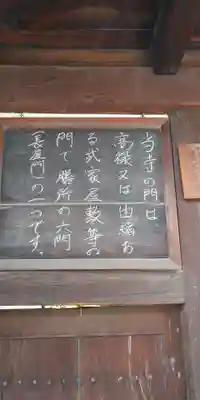 当寺の門は
高禄又は由緒あ
る武家屋敷等の
門で膳所の六門
（長屋門）の一つです。